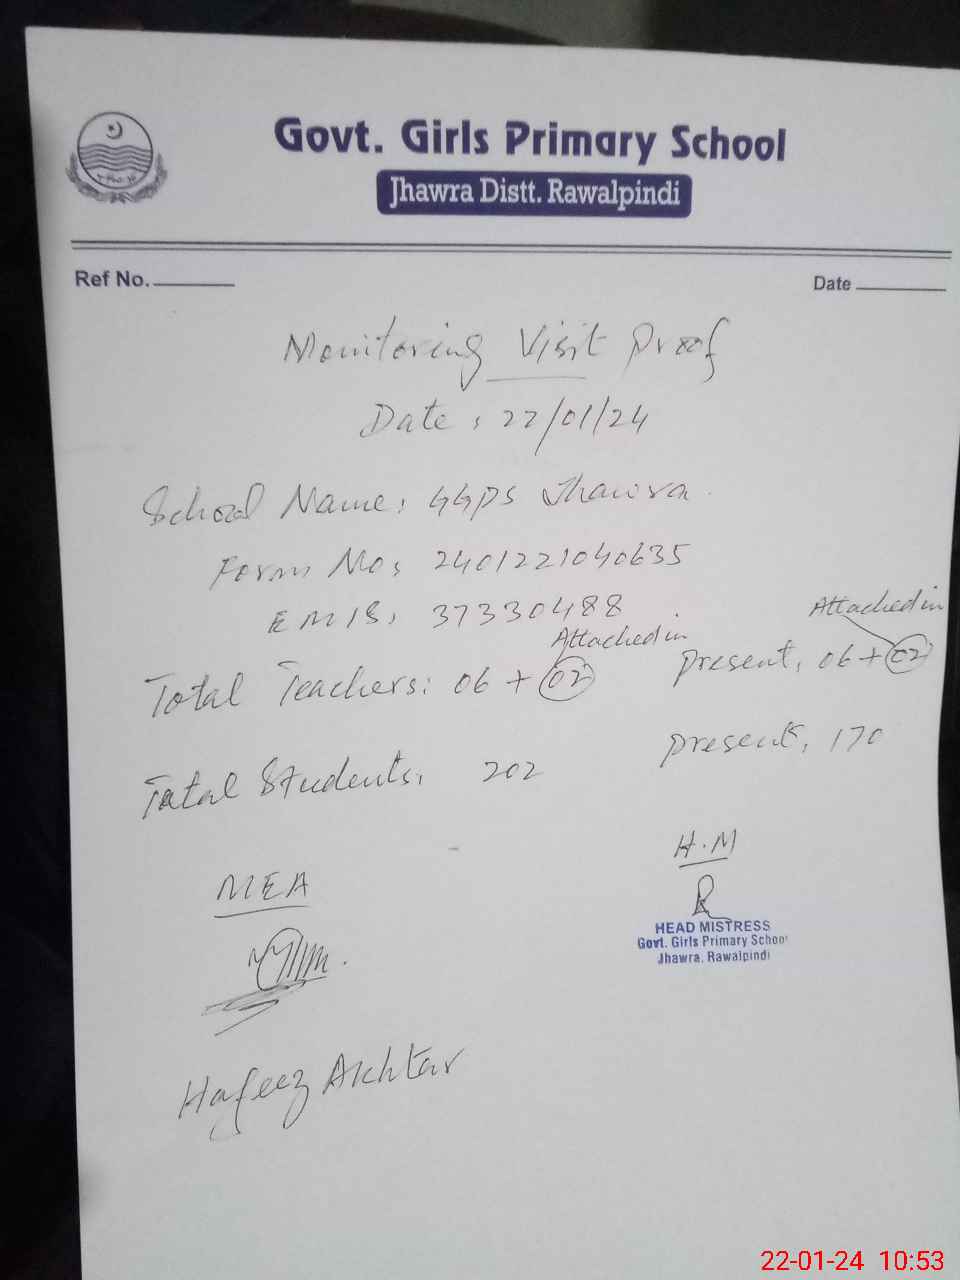 Govt. Girls Primary School
Jhawra Distt. Rawalpindi
Ref No.
Date
Monitoring Visit Proof
Date: 22/01/24
School Name: GGPS Jhawra.
Form No: 2401221040635
EMIS: 37330488
Attached in
Attached in
Total Teachers: 06 + 02
Present: 06 + 02
Total Students: 202
Present: 170
MEA
H.M
HEAD MISTRESS
Govt. Girls Primary School
Jhawra, Rawalpindi
Hafeez Akhtar
22-01-24 10:53